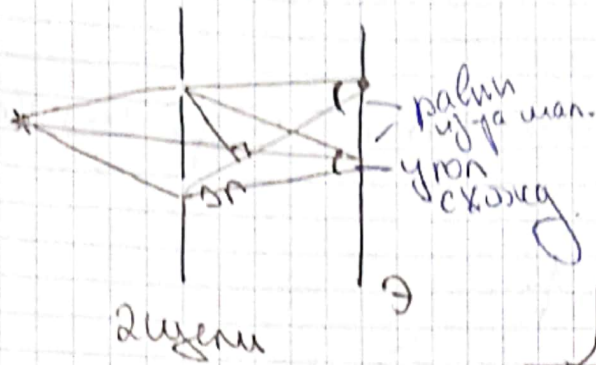 равн
из-за мал.
угол
схожд.
Δr
Э
2 щели